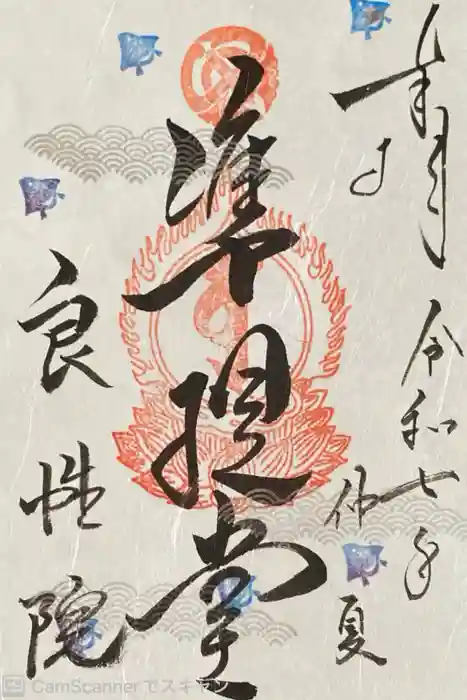 奉拝
令和七年
仲夏
準提堂
良性院
CamScannerでスキャン